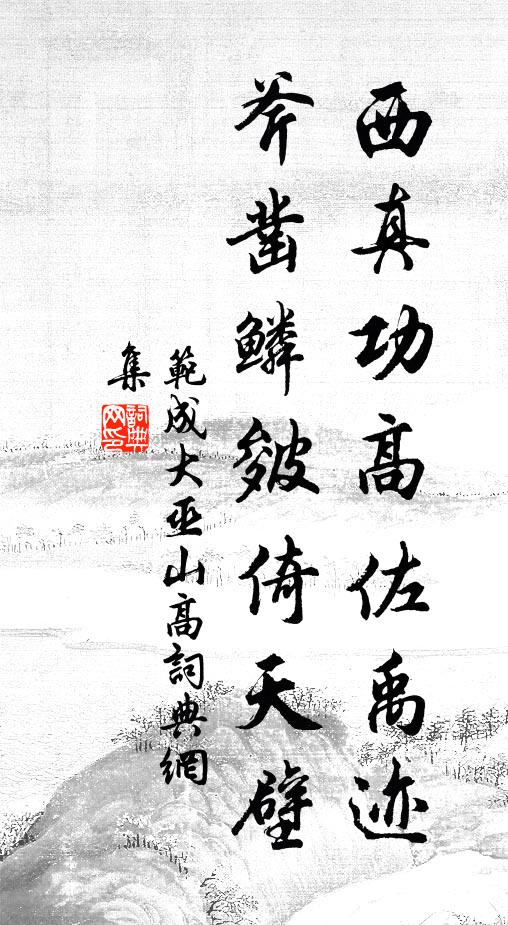 西真功高佐禹迹
斧凿鱗皴倚天壁
範成大巫山高詞典網
集
詞典
网印